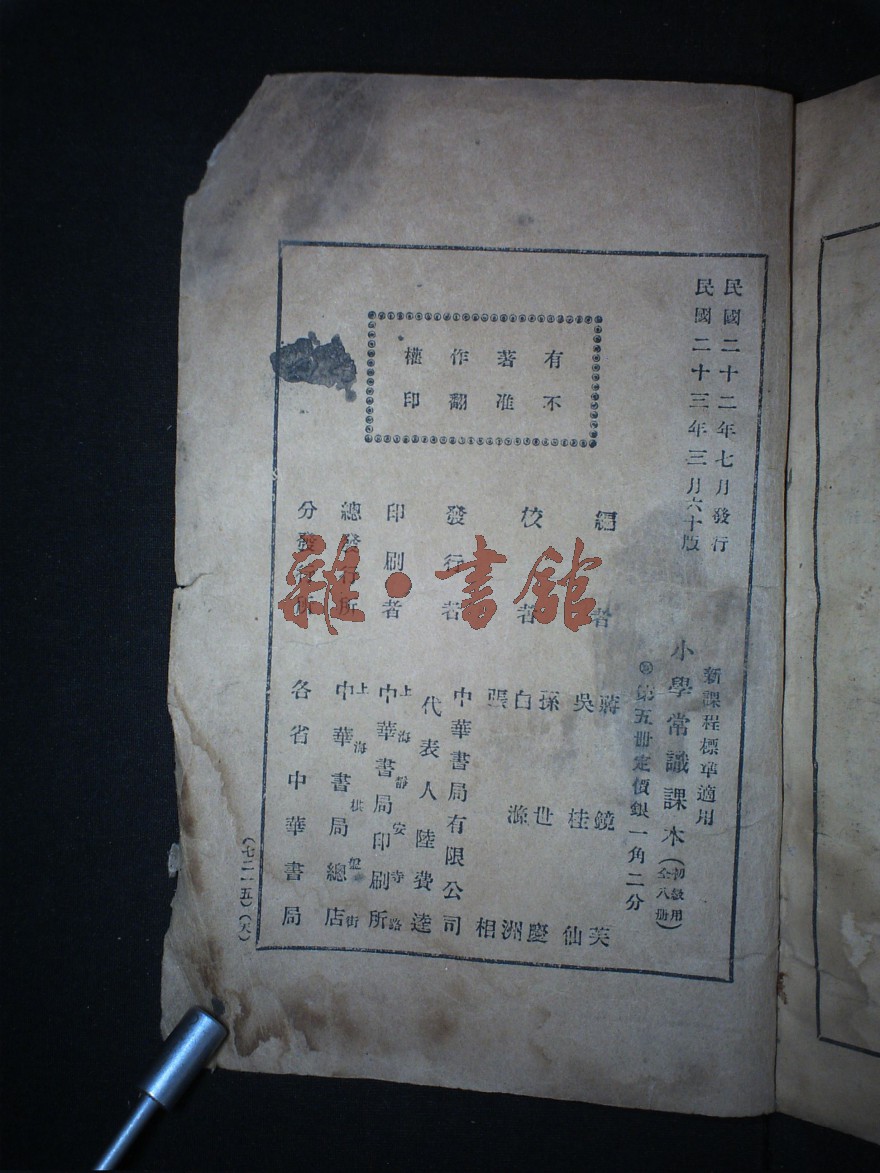 民國二十二年七月發行
民國二十三年三月六十版
新課程標準適用
小學常識課本（初級用全八冊）
第五冊定價銀一角二分
有著作權
不准翻印
編者
蔣鏡芙
吳桂仙
校者
孫世慶
白滌洲
張相
發行者
中華書局有限公司
代表人陸費逵
印刷者
上海靜安寺路
中華書局印刷所
總發行所
上海棋盤街
中華書局總店
分發行所
各省中華書局
（七二一五）（天）
雜·書館